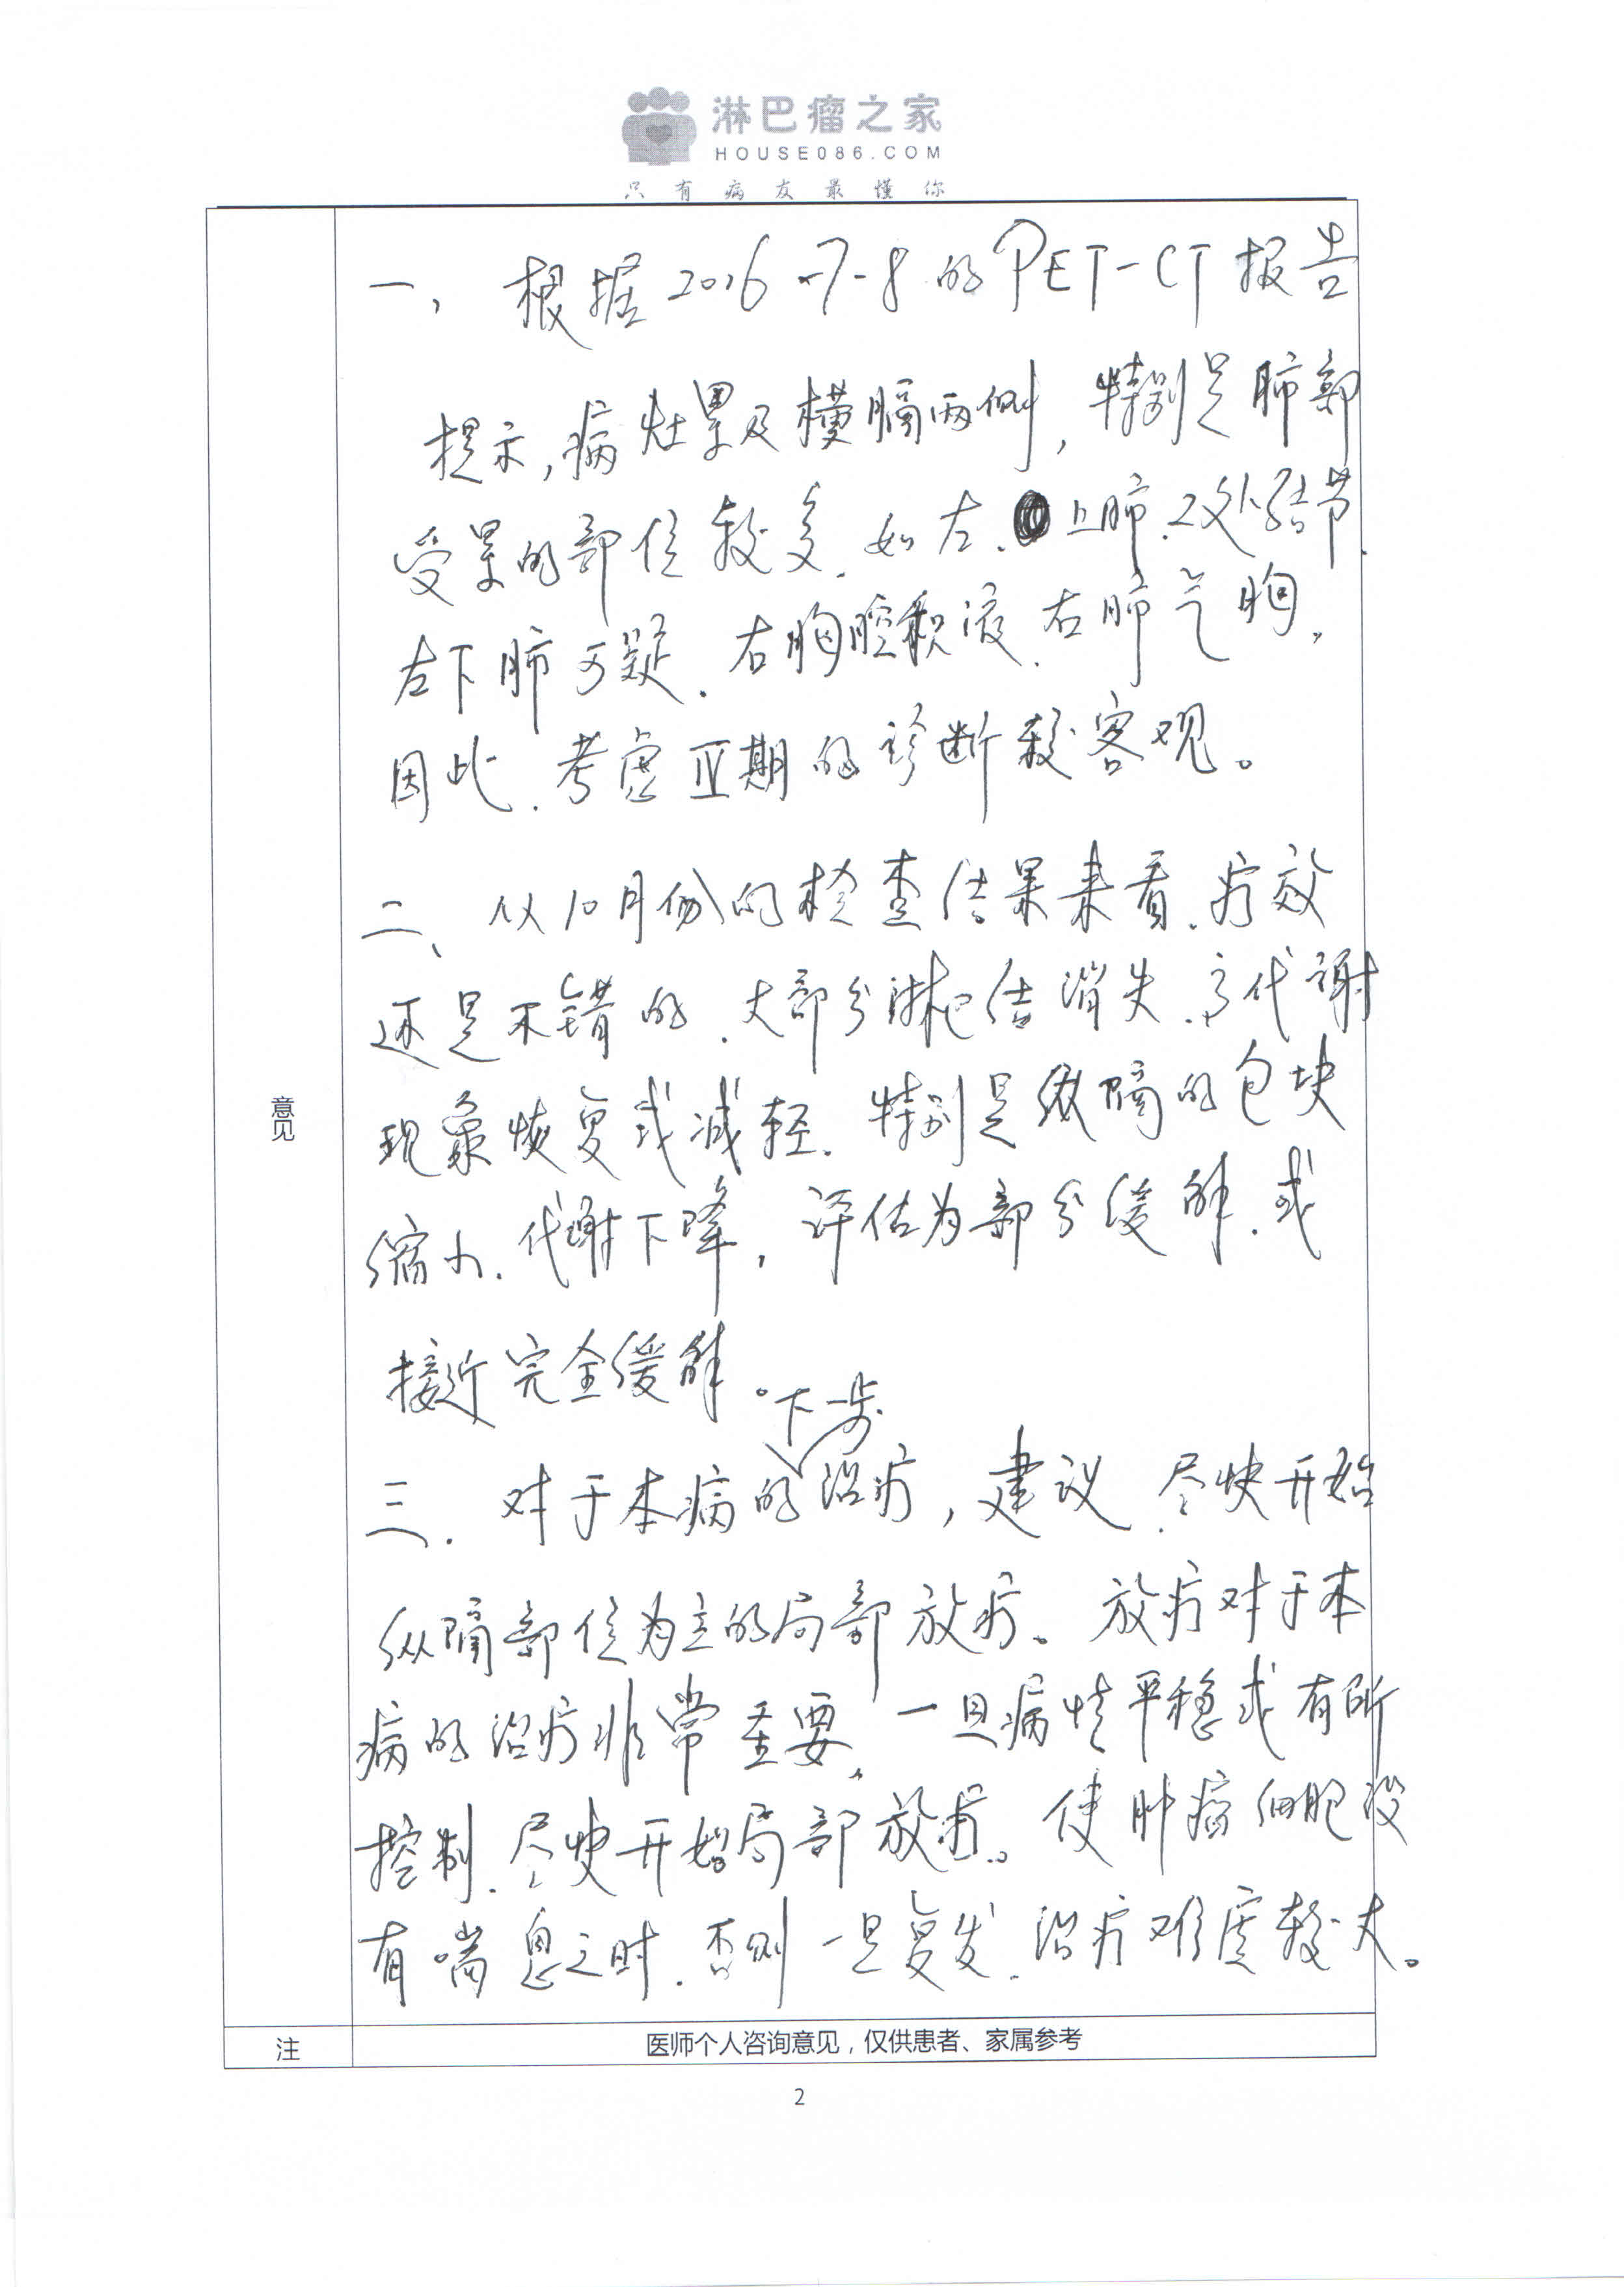 淋巴瘤之家
HOUSE086.COM
只有病友最懂你
一、根据2016-7-8的PET-CT报告
提示,病灶累及横膈两侧,特别是肺部
受累的部位较多.如左.上肺.2处结节.
左下肺可疑.右胸腔积液.右肺气胸,
因此.考虑Ⅳ期的诊断较客观。
二、从10月份的检查结果来看.疗效
还是不错的.大部分淋巴结消失.高代谢
现象恢复或减轻.特别是纵膈的包块
缩小.代谢下降,评估为部分缓解.或
接近完全缓解。
三.对于本病的下一步治疗,建议.尽快开始
纵膈部位为主的局部放疗。放疗对于本
病的治疗非常重要,一旦病情平稳或有所
控制.尽快开始局部放疗。使肿瘤细胞没
有喘息之时.否则一旦复发.治疗难度较大。
意见
注
医师个人咨询意见,仅供患者、家属参考
2